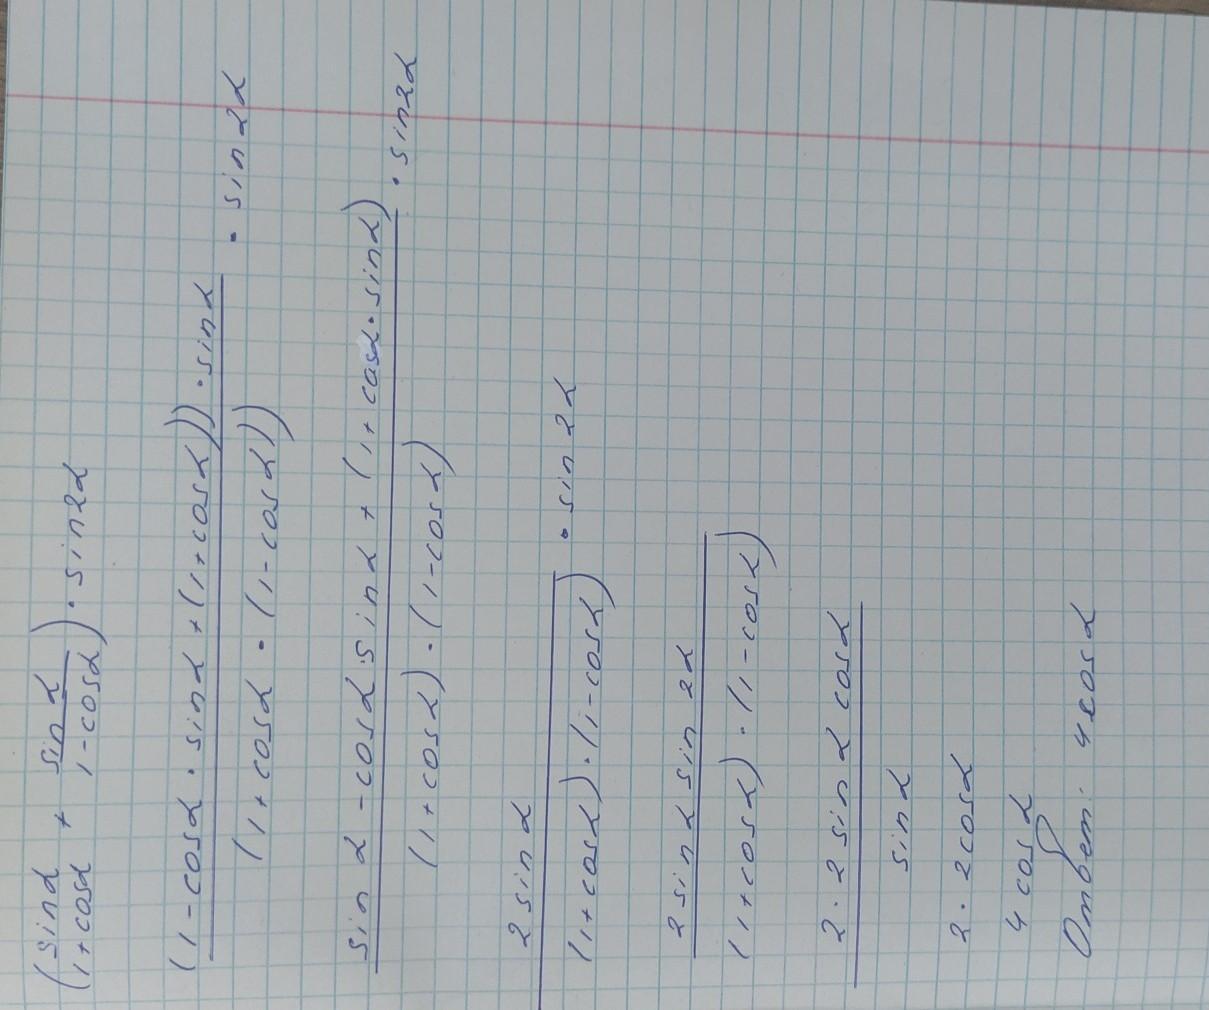 (sinα/1+cosα + sinα/1-cosα) · sin2α
(1-cosα · sinα + (1+cosα)) · sinα
(1+cosα · (1-cosα)) · sin2α
sinα - cosα sinα + (1+cosα · sinα)
(1+cosα) · (1-cosα) · sin2α
2 sinα
(1+cosα) · (1-cosα) · sin2α
2 sinα sin2α
(1+cosα) · (1-cosα)
2 · 2 sinα cosα
sinα
2 · 2cosα
4 cosα
Ответ: 4cosα